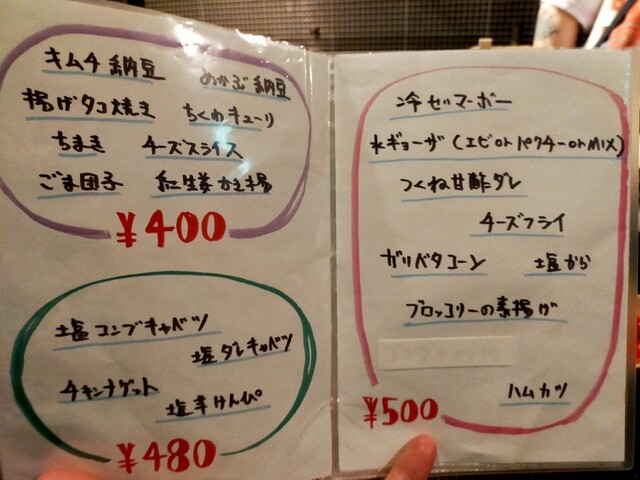 キムチ納豆
めかぶ納豆
揚げタコ焼き
ちくわキューリ
ちまき
チーズスライス
ごま団子
紅生姜かき揚
¥400
塩コンブキャベツ
塩ダレキャベツ
チキンナゲット
塩芋けんぴ
¥480
冷セルマーボー
水ギョーザ(エビorパクチーorMIX)
つくね甘酢ダレ
チーズフライ
ガリバタコーン
塩から
ブロッコリーの素揚げ
ハムカツ
¥500